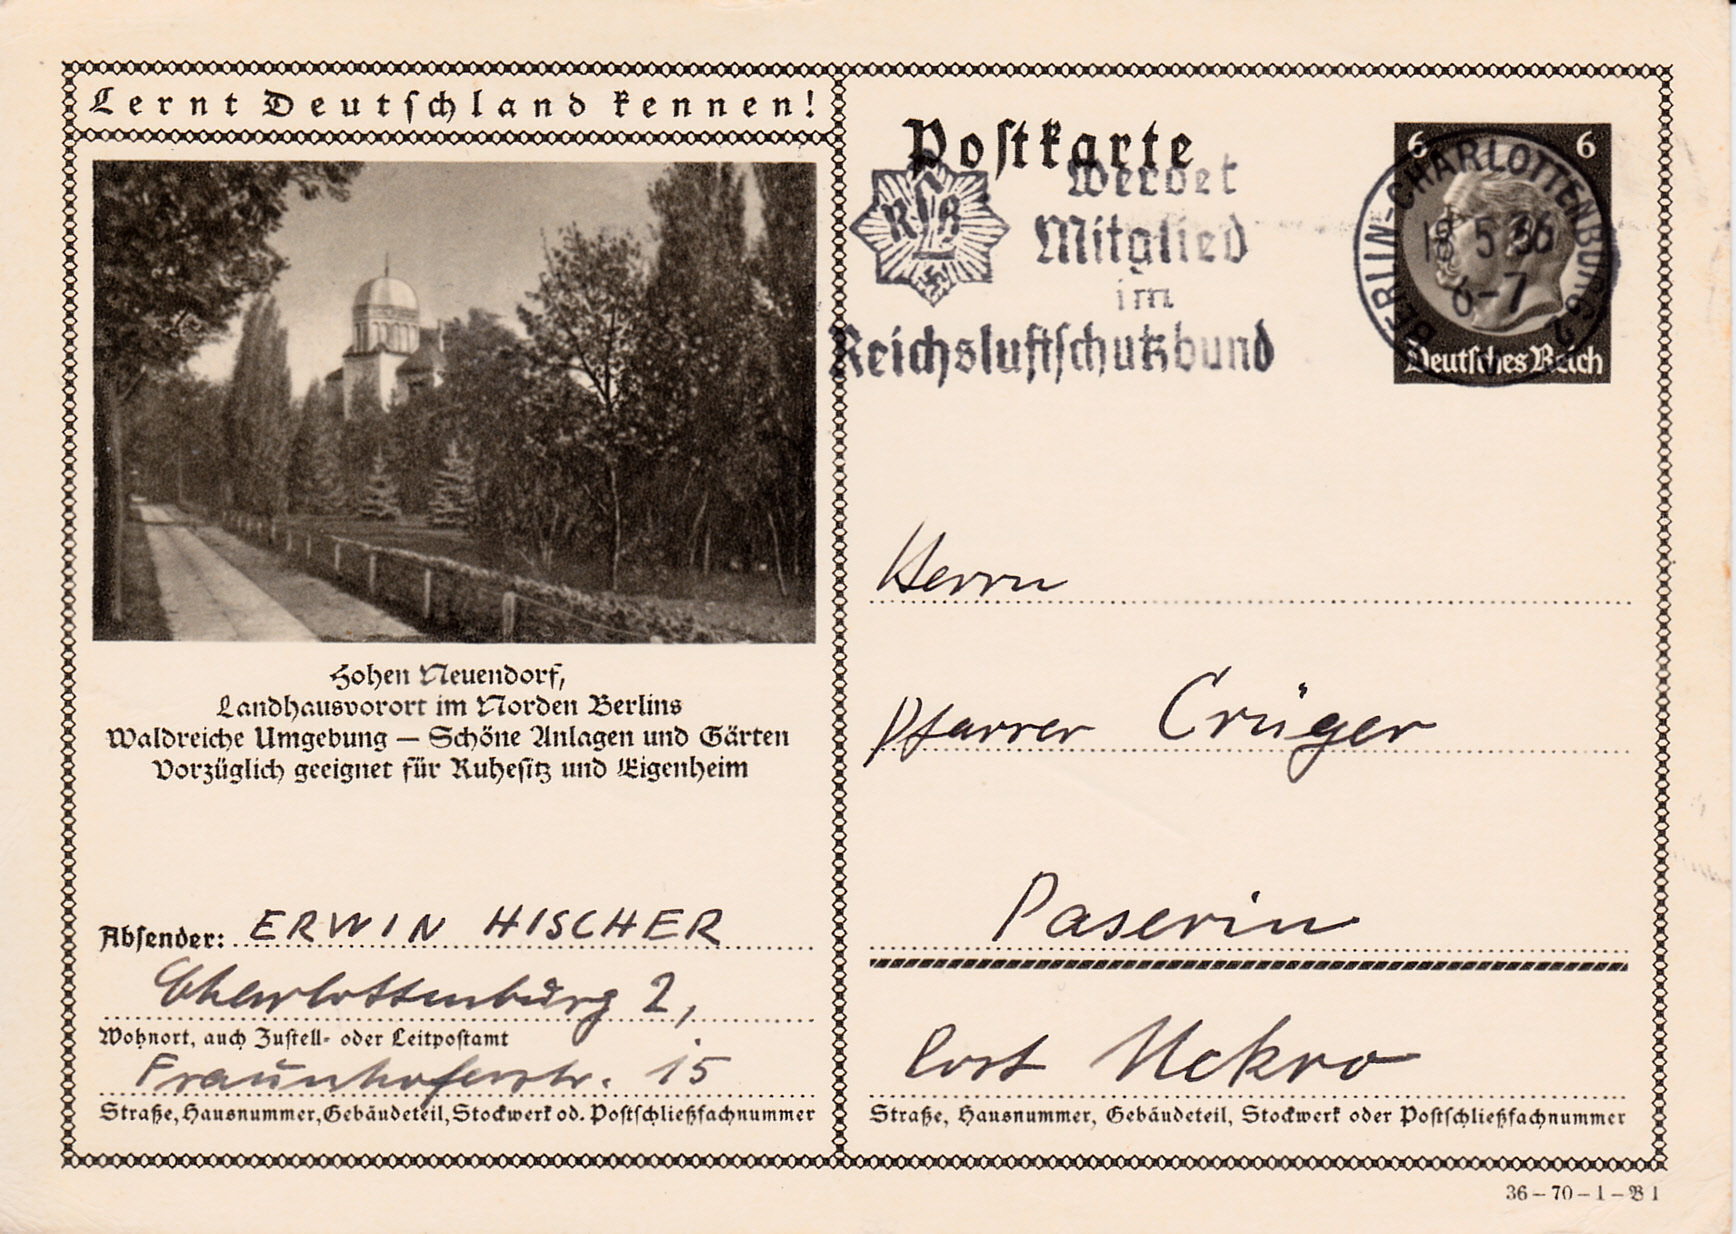 Lernt Deutschland kennen!
Hohen Neuendorf,
Landhausvorort im Norden Berlins
Waldreiche Umgebung — Schöne Anlagen und Gärten
Vorzüglich geeignet für Ruhesitz und Eigenheim
Absender: ERWIN HISCHER
Charlottenburg 2,
Wohnort, auch Zustell- oder Leitpostamt
Fraunhoferstr. 15
Straße, Hausnummer, Gebäudeteil, Stockwerk od. Postschließfachnummer
Postkarte
RLB
Werdet
Mitglied
im
Reichsluftschutzbund
6 6
BERLIN-CHARLOTTENBURG 2
5.36
6-7
Deutsches Reich
Herrn
Pfarrer Crüger
Paserin
Post Uckro
Straße, Hausnummer, Gebäudeteil, Stockwerk oder Postschließfachnummer
36-70-1-B 1